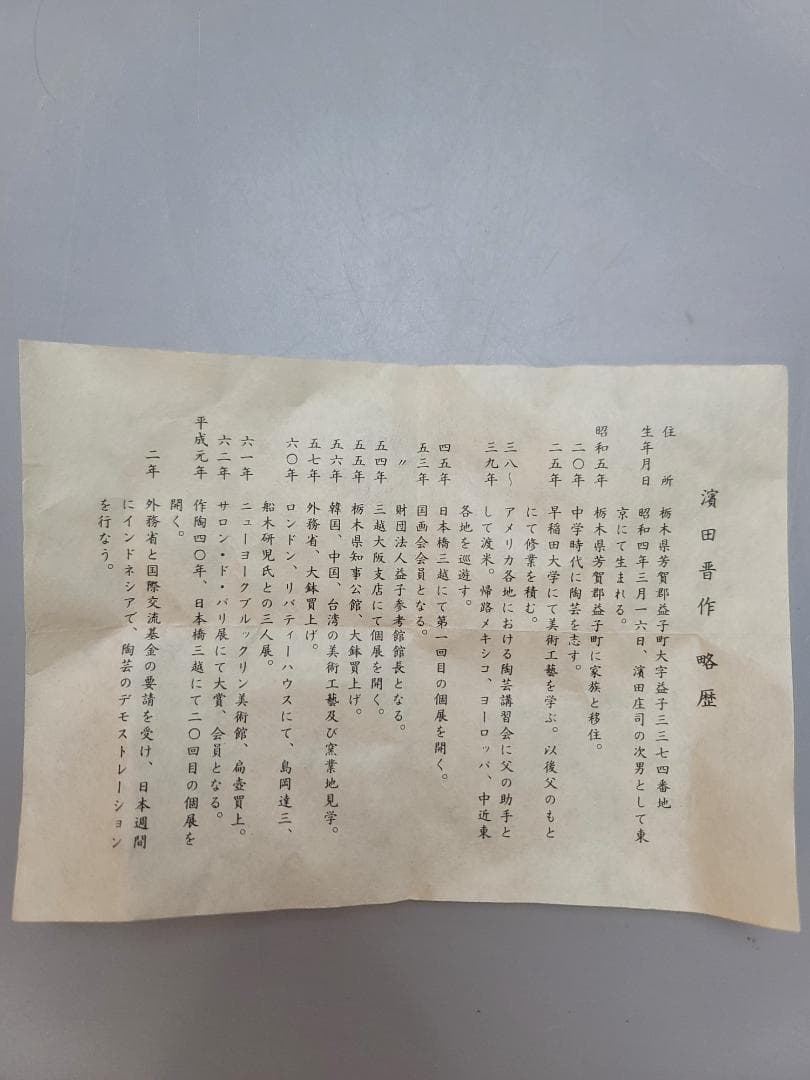 濱田晋作 略歴
住所 栃木県芳賀郡益子町大字益子三三七四番地
生年月日 昭和四年三月一六日、濱田庄司の次男として東
京にて生まれる。
昭和五年 栃木県芳賀郡益子町に家族と移住。
二〇年 中学時代に陶芸を志す。
二五年 早稲田大学にて美術工藝を学ぶ。以後父のもと
にて修業を積む。
三八～ アメリカ各地における陶芸講習会に父の助手と
三九年 して渡米。帰路メキシコ、ヨーロッパ、中近東
各地を巡遊す。
四五年 日本橋三越にて第一回目の個展を開く。
五三年 国画会会員となる。
〃 財団法人益子参考館館長となる。
五四年 三越大阪支店にて個展を開く。
五五年 栃木県知事公館、大鉢買上げ。
五六年 韓国、中国、台湾の美術工藝及び窯業地見学。
五七年 外務省、大鉢買上げ。
六〇年 ロンドン、リバティーハウスにて、島岡達三、
船木研児氏との三人展。
六一年 ニューヨークブルックリン美術館、扁壺買上。
六二年 サロン・ド・パリ展にて大賞、会員となる。
平成元年 作陶四〇年、日本橋三越にて二〇回目の個展を
開く。
二年 外務省と国際交流基金の要請を受け、日本週間
にインドネシアで、陶芸のデモストレーション
を行なう。